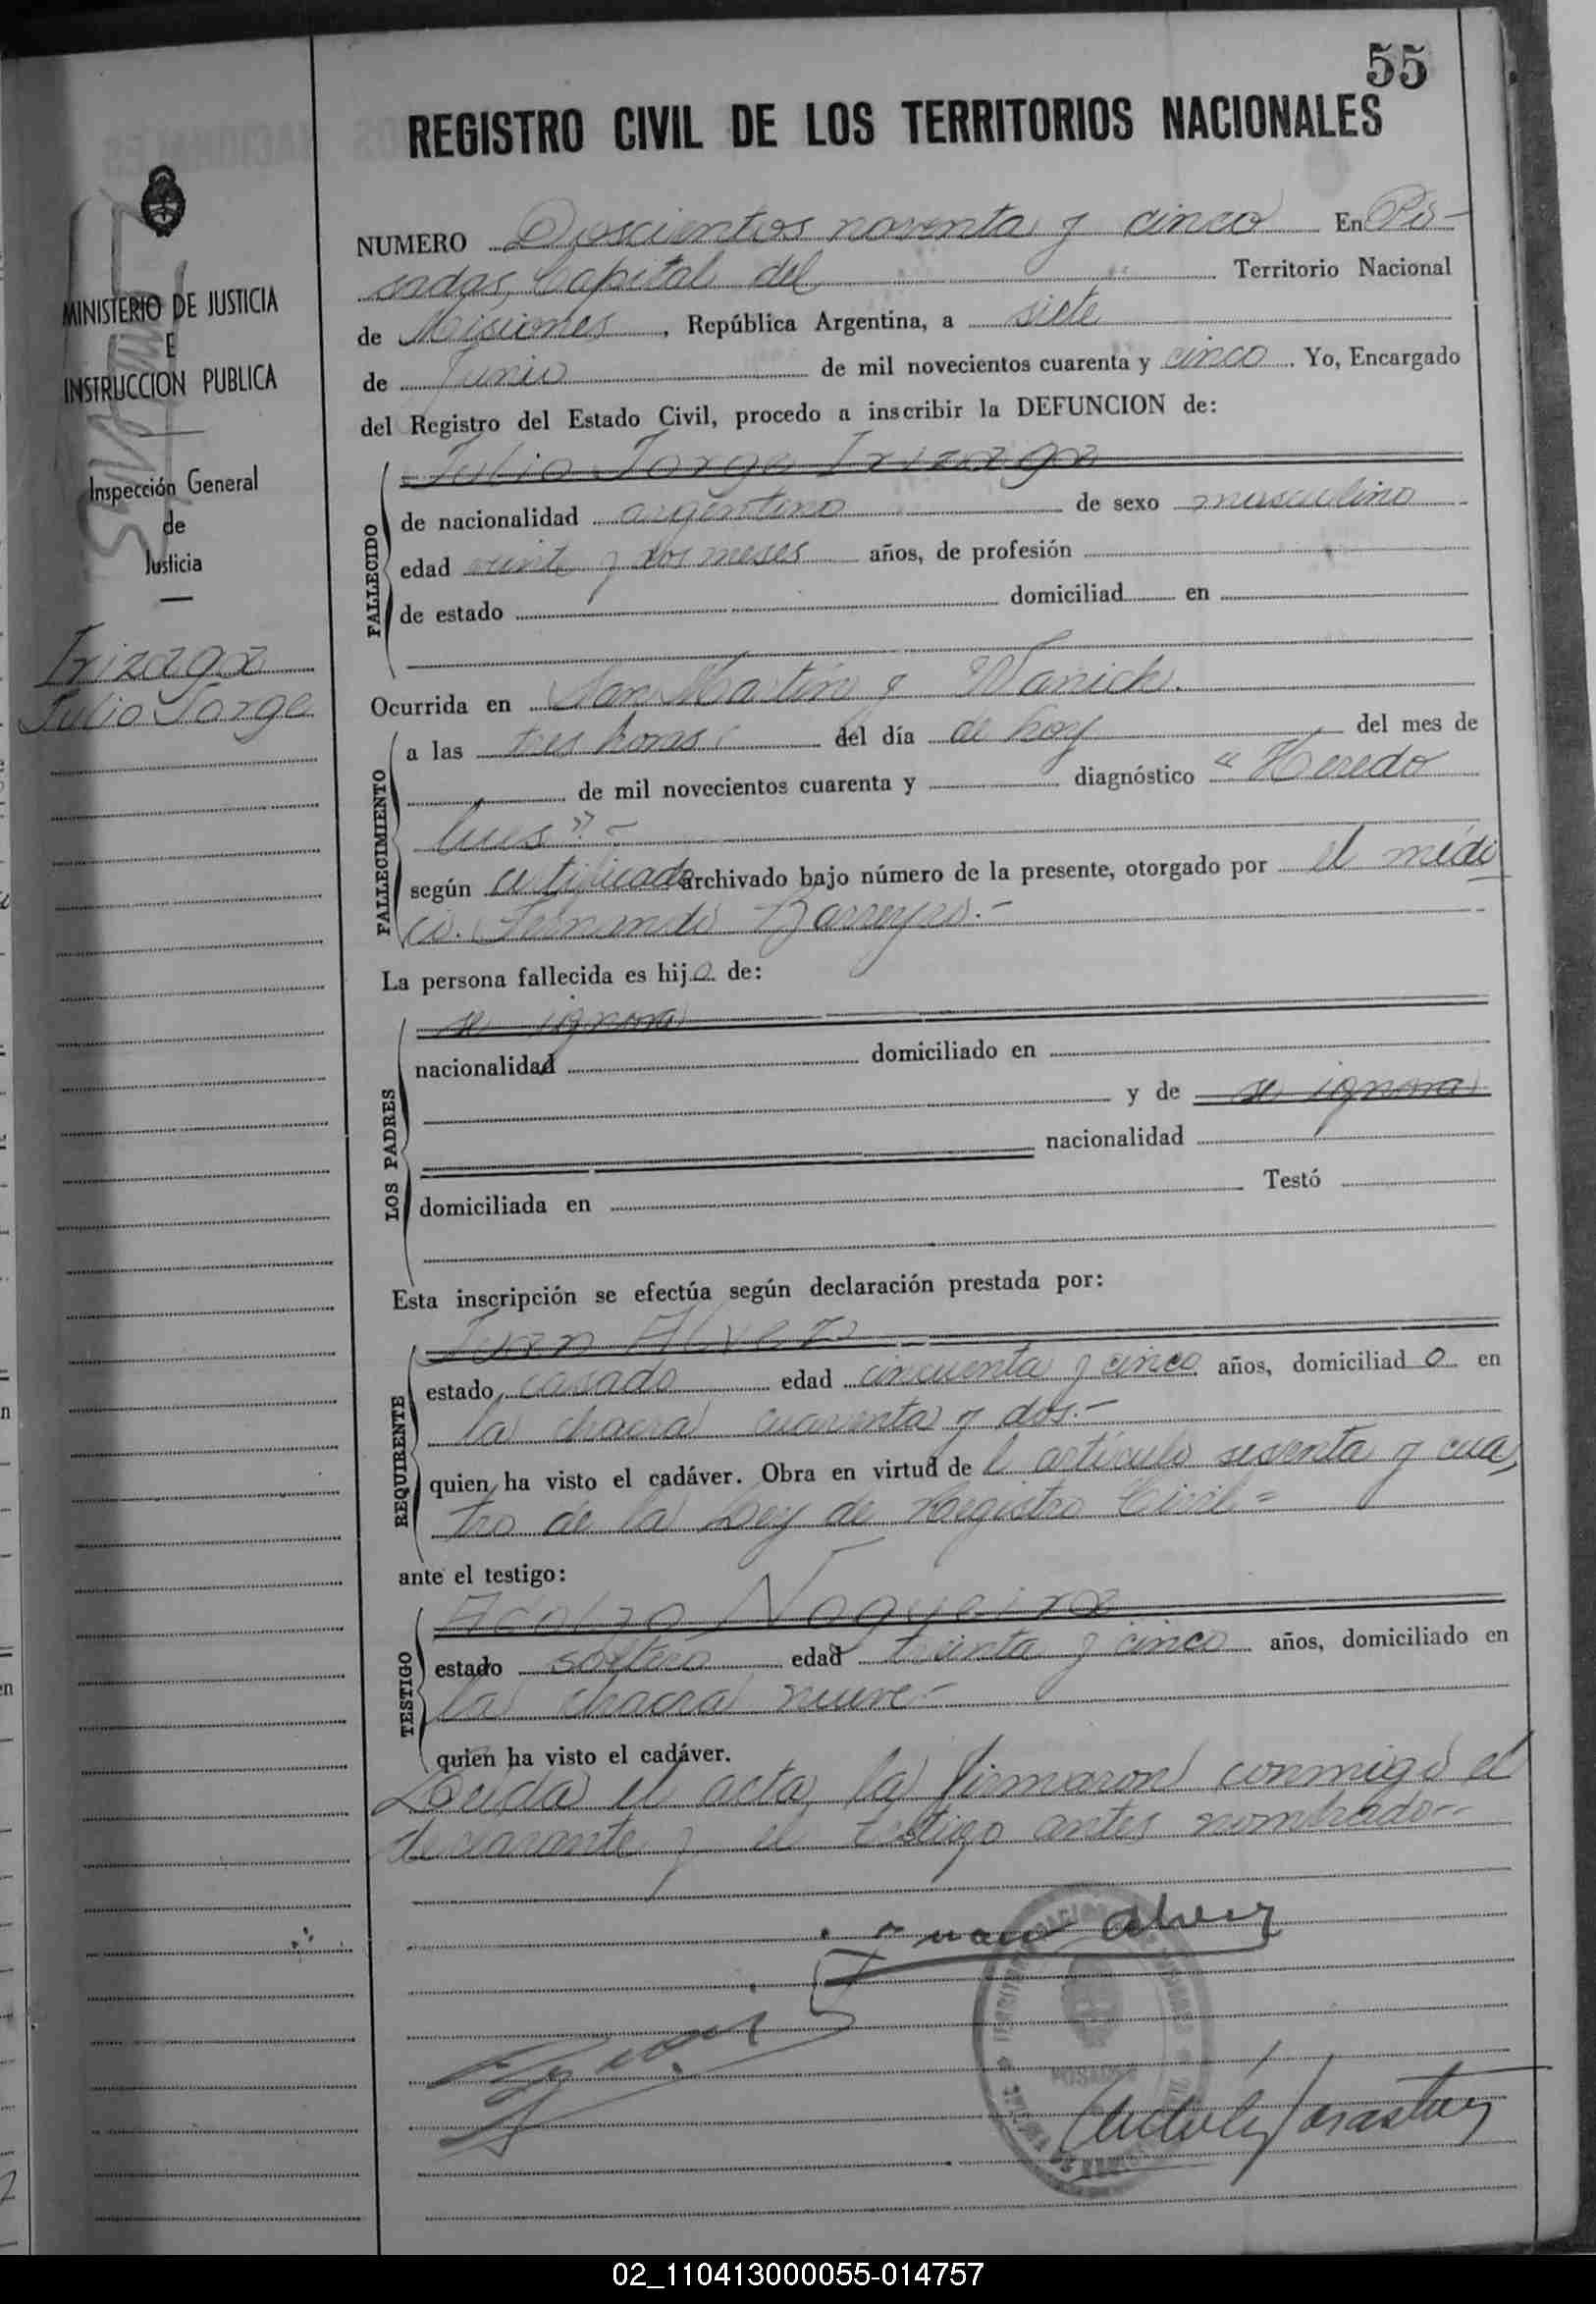 55
REGISTRO CIVIL DE LOS TERRITORIOS NACIONALES
MINISTERIO DE JUSTICIA
E
INSTRUCCION PUBLICA
Inspección General
de
Justicia
Irizaga
Julio Jorge
NUMERO Doscientos noventa y cinco En Po-
sadas, Capital del Territorio Nacional
de Misiones, República Argentina, a siete
de Junio de mil novecientos cuarenta y cinco. Yo, Encargado
del Registro del Estado Civil, procedo a inscribir la DEFUNCION de:
FALLECIDO
Julio Jorge Irizaga
de nacionalidad argentino de sexo masculino
edad veinte y dos meses años, de profesión
de estado domiciliad en
Ocurrida en San Martín y
FALLECIMIENTO
a las tres horas del día de hoy del mes de
de mil novecientos cuarenta y diagnóstico "Heredo
lues".-
según certificado archivado bajo número de la presente, otorgado por el médi
co. Fernando Barreyro.-
La persona fallecida es hijo de:
LOS PADRES
se ignora
nacionalidad domiciliado en
y de se ignora
nacionalidad
domiciliada en Testó
Esta inscripción se efectúa según declaración prestada por:
REQUIRENTE
Juan Alvez
estado casado edad cincuenta y cinco años, domiciliado en
la chacra cuarenta y dos.-
quien ha visto el cadáver. Obra en virtud del artículo sesenta y cua
tro de la Ley de Registro Civil=
ante el testigo:
TESTIGO
Adolfo Nogueira
estado soltero edad treinta y cinco años, domiciliado en
la chacra nueve-
quien ha visto el cadáver.
Leida el acta, la firmaron conmigo el
declarante y el testigo antes nombrado--
Juan Alvez
POSADAS
02_110413000055-014757